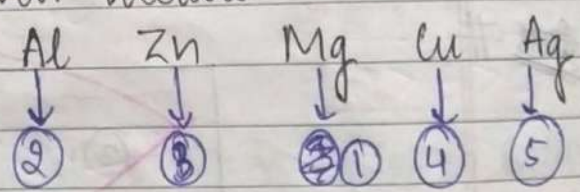 Al Zn Mg Cu Ag
2 3 1 4 5